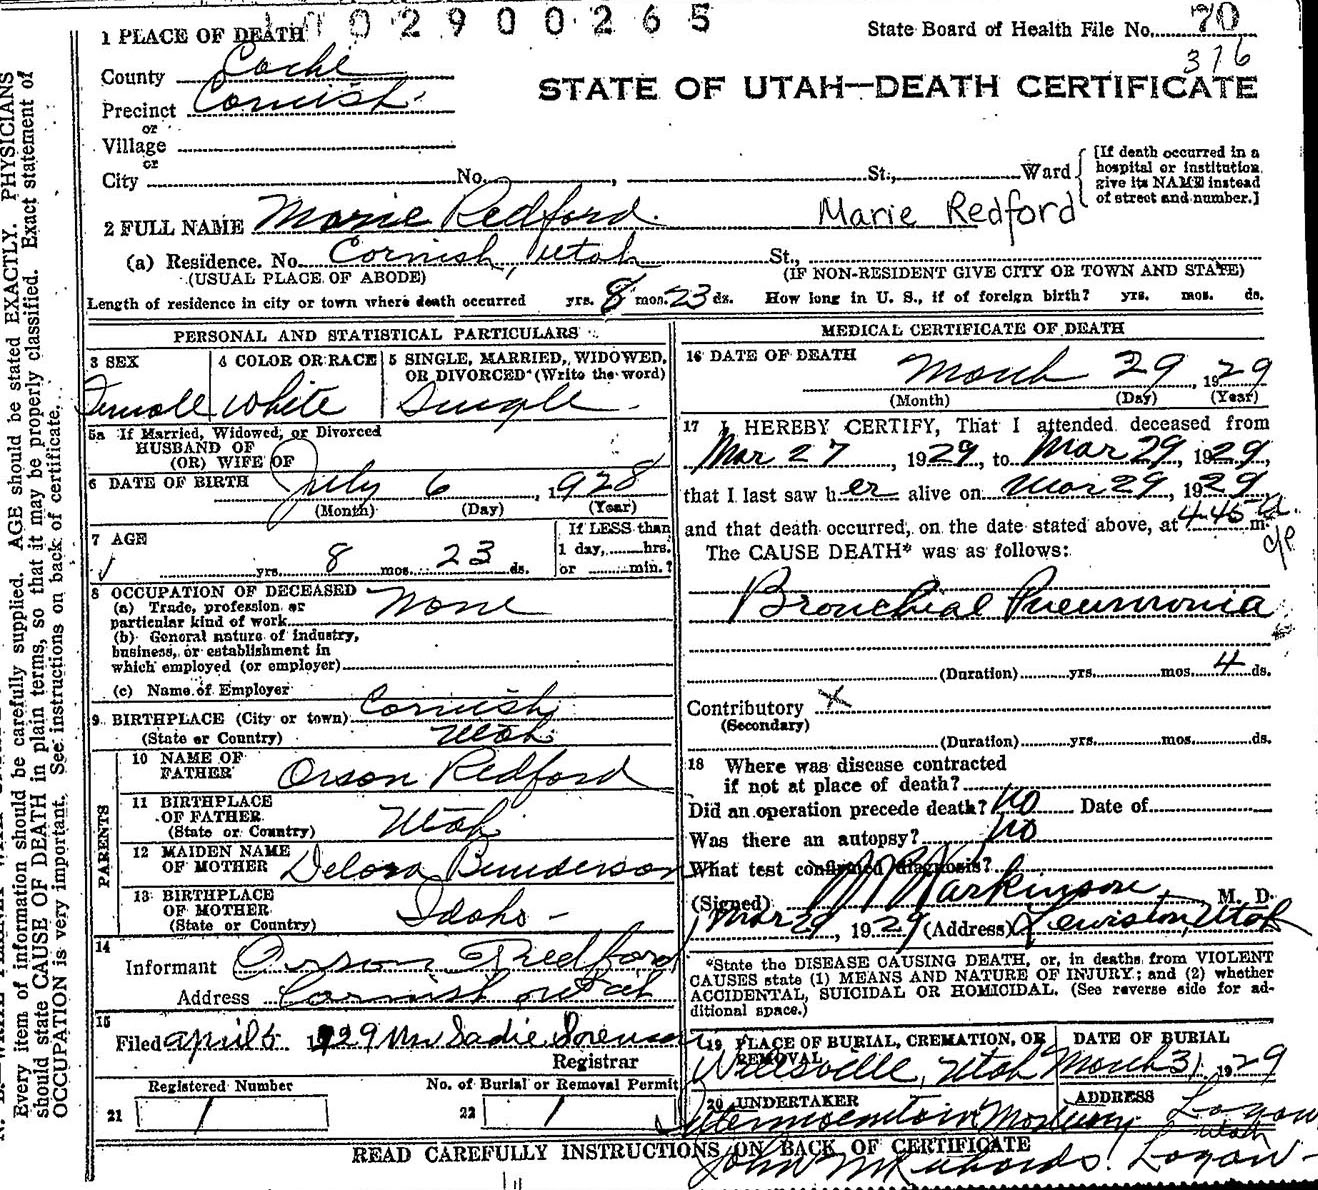 1 PLACE OF DEATH 02900265 State Board of Health File No. 70
316
County Cache
STATE OF UTAH—DEATH CERTIFICATE
Precinct Cornish
or
Village
or
City No. , St., Ward
[If death occurred in a
hospital or institution
give its NAME instead
of street and number.]
2 FULL NAME Marie Redford. Marie Redford
(a) Residence. No. Cornish, Utah St.,
(USUAL PLACE OF ABODE) (IF NON-RESIDENT GIVE CITY OR TOWN AND STATE)
Length of residence in city or town where death occurred yrs. 8 mos. 23 ds. How long in U. S., if of foreign birth? yrs. mos. ds.
PERSONAL AND STATISTICAL PARTICULARS
3 SEX 4 COLOR OR RACE 5 SINGLE, MARRIED, WIDOWED,
OR DIVORCED (Write the word)
Female White Single
5a If Married, Widowed, or Divorced
HUSBAND OF
(OR) WIFE OF
6 DATE OF BIRTH July 6, 1928
(Month) (Day) (Year)
7 AGE If LESS than
1 day, hrs.
yrs. 8 mos. 23 ds. or min.?
8 OCCUPATION OF DECEASED None
(a) Trade, profession or
particular kind of work
(b) General nature of industry,
business, or establishment in
which employed (or employer)
(c) Name of Employer
9 BIRTHPLACE (City or town) Cornish
(State or Country) Utah
PARENTS
10 NAME OF
FATHER Orson Redford
11 BIRTHPLACE
OF FATHER
(State or Country) Utah
12 MAIDEN NAME
OF MOTHER Delora Bunderson
13 BIRTHPLACE
OF MOTHER
(State or Country) Idaho -
14
Informant Orson Redford
Address Cornish Utah
15
Filed April 5 1929 Mrs Sadie Sorenson
Registrar
Registered Number No. of Burial or Removal Permit
21 1 22 1
MEDICAL CERTIFICATE OF DEATH
16 DATE OF DEATH
March 29, 1929
(Month) (Day) (Year)
17 I HEREBY CERTIFY, That I attended deceased from
Mar 27, 1929, to Mar 29, 1929,
that I last saw her alive on Mar 29, 1929
and that death occurred, on the date stated above, at 4.45 m.
The CAUSE DEATH* was as follows:
Bronchial Pneumonia
(Duration) yrs. mos. 4 ds.
Contributory X
(Secondary)
(Duration) yrs. mos. ds.
18 Where was disease contracted
if not at place of death?
Did an operation precede death? no Date of
Was there an autopsy? no
What test confirmed diagnosis?
(Signed) Parkinson, M. D.
Mar 29, 1929 (Address) Lewiston, Utah
*State the DISEASE CAUSING DEATH, or, in deaths from VIOLENT
CAUSES state (1) MEANS AND NATURE OF INJURY; and (2) whether
ACCIDENTAL, SUICIDAL OR HOMICIDAL. (See reverse side for ad-
ditional space.)
19 PLACE OF BURIAL, CREMATION, OR
REMOVAL DATE OF BURIAL
Wellsville, Utah March 31 1929
20 UNDERTAKER ADDRESS
Intermountain Mortuary Logan Utah
READ CAREFULLY INSTRUCTIONS ON BACK OF CERTIFICATE
John M Richards. Logan -
Every item of information should be carefully supplied. AGE should be stated EXACTLY. PHYSICIANS
should state CAUSE OF DEATH in plain terms, so that it may be properly classified. Exact statement of
OCCUPATION is very important. See instructions on back of certificate.